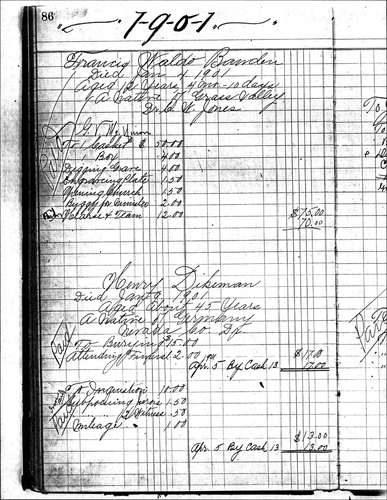 86
1901
Francis Waldo Bawden
Died Jan 4 1901
Aged 12 Years, 4 mo - 10 days
A Native of Grass Valley
Dr. C. W. Jones
Paid
G. V. Mc Union
To 1 Casket $ 50.00
" 1 Box 4.00
Digging Grave 4.00
Engraving Plate 1.50
Opening Church 1.50
Buggy for Minister 2.00
Hearse & Team 12.00
$75.00
70.00
Henry Dikeman
Died Jan 9, 1901
Aged About 45 Years
A Native of Germany
Nevada Co.
Paid
To Burying 15.00
Attending Funeral 2.00
$17.00
Apr. 5 By Cash 13 17.00
Paid
To Inquisition 10.00
1.50
2 .50
Mileage 1.00
$13.00
Apr. 5 By Cash 13 13.00